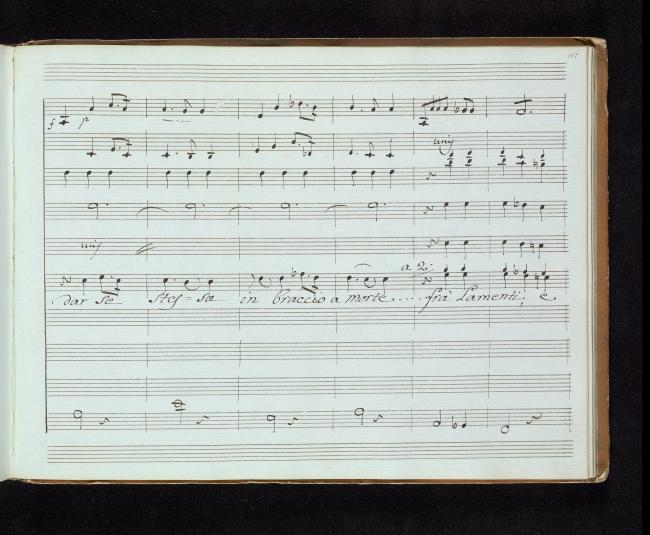 157
f p
unis
unis
a 2.
dar se stes=sa in braccio a morte..... frà Lamenti, e